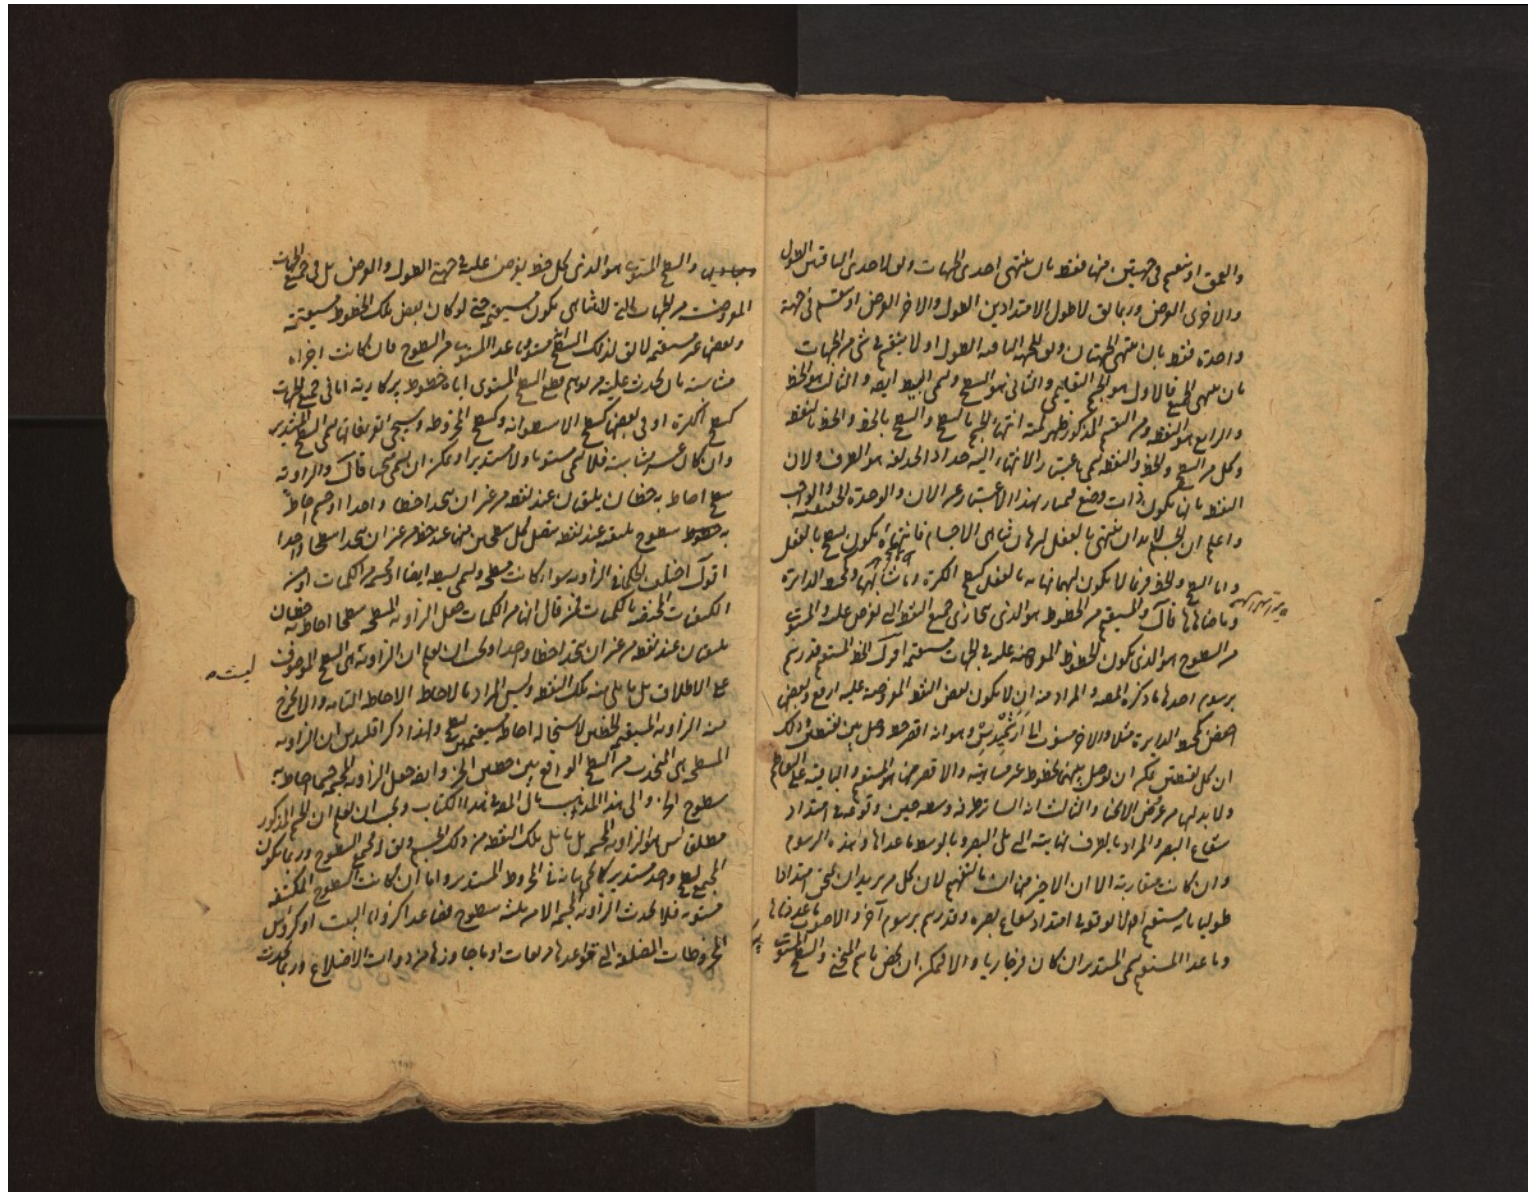 والعمق او منقسم في جهتين منها فقط بان ينتهي احدى الجهات ويق لاحدى الباقيتين الطول
والاخرى العرض وربما يق لاطول الامتدادين الطول والاخر العرض او منقسم في جهة
واحدة فقط بان ينتهي الجهتان ويق للجهة الباقية الطول اولا ينقسم في شي من الجهات
بان ينتهي الجميع فالاول هو الجسم التعليمي والثاني هو السطح ويسمى البسيط ايضا والثالث هو الخط
والرابع هو النقطة ومن التقسيم المذكور ظهر لمية انتهاء الجسم بالسطح والسطح بالخط والخط بالنقطة
وكل من السطح والخط والنقطة يسمى باعتبار الانتهاء اليه حدا اذ الحد لغة هو الطرف ولان
النقطة بانها يكون ذات وضع تمتاز بهذا الاعتبار عن الان والوحدة الحقيقية والواجب
واعلم ان الجسم لابد ان ينتهي بالفعل لبرهان تناهي الاجسام فانتهاؤه يكون بسطح بالفعل
واما السطح والخط فربما لا يكون لهما نهاية بالفعل كسطح الكرة وما شابهها وكخط الدائرة
وما ضاهاها قال والمستقيم من الخطوط هو الذي يحاذي جميع النقط التي تفرض عليه والمستوي
من السطوح هو الذي يكون الخطوط المفروضة عليه في الجهات مستقيمة اقول الخط المستقيم قد رسم
برسوم احدها ما ذكره المصه والمراد منه ان لا يكون بعض النقط المفروضة عليه ارفع وبعض
اخفض كمحيط الدائرة مثلا والاخر منسوب الى ارشميدس وهو انه اقصر خط وصل بين نقطتين وذلك
ان كل نقطتين يمكن ان يوصل بينهما بخطوط غير متناهية والاقصر منها هو المستقيم والباقية على التعاظم
ولا بد لها من عروض الانحناء والثالث انه الساتر طرفه وسطه حين وقوعه في امتداد
شعاع البصر والمراد بالطرف نهايته التي تلي البصر وبالوسط ما عداها وهذه الرسوم
وان كانت متقاربة الا ان الاخير منها انسب بالتفهيم لان كل من يريد ان يمتحن امتدادا
طوليا بانه مستقيم ام لا يوقعه في امتداد شعاع بصره وقد رسم برسوم آخر والاصوب ما عددناها
وما عدا المستقيم يسمى المستدير ان كان فرجاريا والا فيمكن ان يخص باسم المنحني والسطح المستوي
والسطح المستوي هو الذي كل خط يفرض عليه في جهتي الطول والعرض بل في جميع الجهات
المفروضة من الجهات التي لا يتناهى يكون مستقيما حتى لو كان بعض تلك الخطوط مستقيمة
وبعضها غير مستقيمة لا يق لذلك السطح مستو وما عدا المستوي من السطوح فان كانت اجزاه
متشابهة بان يحدث عليه من توهم قطع السطح المستوي اياه خطوط بركارية اما في جميع الجهات
كسطح الكرة او في بعضها كسطح الاسطوانة وكسطح المخروط وسيجئ تعريفاتها يسمى السطح المستدير
وان كان غير متشابهة فلا يسمى مستويا ولا مستديرا ويمكن ان يسمى منحنيا قال والزاوية
سطح احاط به خطان يلتقيان عند نقطة من غير ان يتحدا خطا واحدا او جسم احاط
به سطوح ملتقية عند نقطة يتصل كل سطحين منها عند خط من غير ان يتحدا سطحا واحدا
اقول اختلف الحكماء في الزاوية سواء كانت مسطحة ويسمى بسيطة ايضا او مجسمة من الكميات او من
الكيفيات المختصة بالكميات فمن قال انها من الكميات جعل الزاوية المسطحة سطحا احاط به خطان
يلتقيان عند نقطة من غير ان يتحدا خطا واحدا ويجب ان يعلم ان الزاوية هي السطح الموصوف
ليست
على الاطلاق بل ما يلي منه تلك النقطة وليس المراد بالاحاطة الاحاطة التامة والا لخرج
منه الزاوية المستقيمة الخطين لاستحالة احاطة مستقيمين بسطح ولهذا ذكر اقليدس ان الزاوية
المسطحة هي المنحدب من السطح الواقع بين خطين الخ وايضا جعل الزاوية المجسمة جسما احاط به
سطوح الخ والى هذا المذهب مال المصه في هذا الكتاب ويجب ان يعلم ان الجسم المذكور
مطلقا ليس هو الزاوية المجسمة بل ما يلي تلك النقطة من ذلك الجسم
الجميع سطح واحد مستدير كما في المخروط المستدير واما ان كانت السطوح المكتنفة
مستوية فلا يحدث الزاوية المجسمة الا من ثلثة سطوح فصاعدا كزوايا البيت او كرؤس
المخروطات المضلعة التي قواعدها مربعات او ما جاوزها من ذوات الاضلاع وربما يحدث